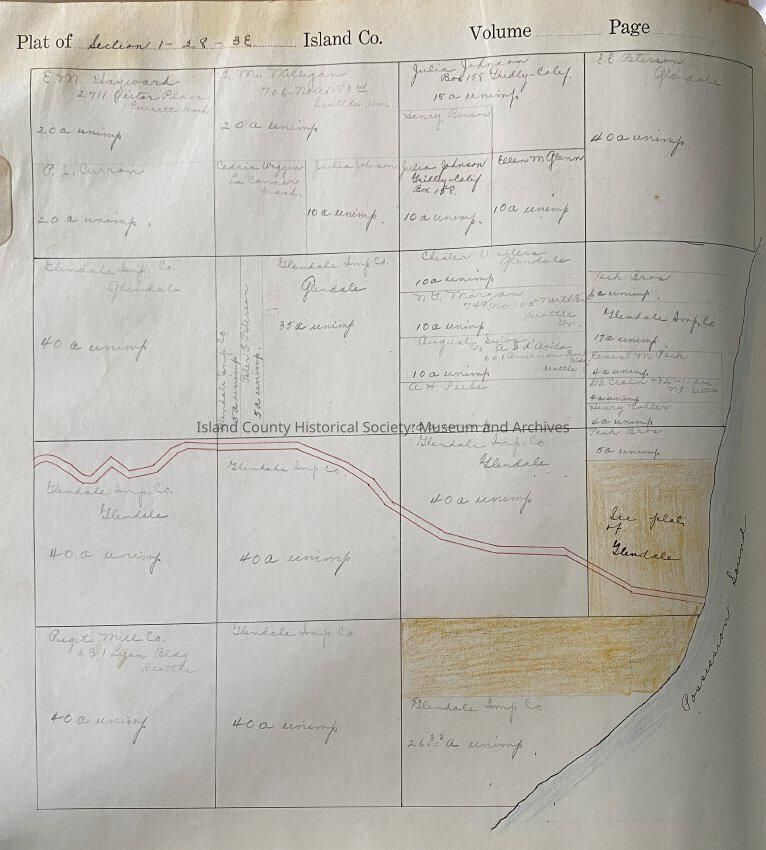 Plat of Section 1-28-3E Island Co. Volume Page
E. M. Hayward
2711 Victor Place
Everett Wash
20 a unimp
T. M. Milligan
706-North-73rd
Seattle, Wn.
20 a unimp
Julia Johnson
Box 158 Gridly-Calif.
15 a unimp
Henry Benson
E E Peterson
Glendale
40 a unimp
P. L. Curran
20 a unimp.
Cedric Wiggin
La Conner
Wash.
Julia Johnson
10 a unimp.
Julia Johnson
Gridley-Calif
Box 158.
10 a unimp.
Ellen M Glenn
10 a unimp
Glendale Imp. Co.
Glendale
40 a unimp
Glendale Imp Co
5 a unimp.
Peterson
5 a unimp.
Glendale Imp Co.
Glendale
35 a unimp
Chester Walters
Glendale
10 a unimp
Morgan
749 No. 105 North
Seattle
Wn.
10 a unimp
August Silva
c/o A S d'Avila
601 American Bank
Bldg
Seattle
10 a unimp
A. H. Peche
Peck Bros
unimp.
Glendale Imp. Co
17 a unimp
Ernest M Peck
4 a unimp
N.E. Seattle
4 a unimp
Henry Kohler
4 a unimp
Peck Bros
5 a unimp.
Island County Historical Society: Museum and Archives
Glendale Imp. Co.
Glendale
40 a unimp
Glendale Imp. Co
40 a unimp
Glendale Imp. Co
Glendale
40 a unimp
See plat
of
Glendale
Puget Mill Co.
631 Lyon Bldg
Seattle
40 a unimp
Glendale Imp. Co
40 a unimp
Glendale Imp Co
26.33 a unimp.
Possession Sound